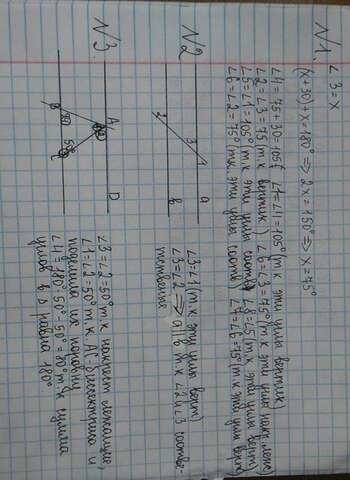 N1.
∠3=x
(x+30)+x=180° ⇒ 2x=150° ⇒ x=75°
∠4=75+30=105°; ∠1=∠4=105° (т.к эти углы вертик)
∠2=∠3=75° (т.к вертик.) ∠6=∠3=75° (т.к эти углы накр. леж.)
∠5=∠1=105° (т.к. эти углы соотв) ∠8=∠5 (т.к эти углы верт)
∠6=∠2=75° (т.к. эти углы соотв) ∠7=∠6=75° (т.к эти углы верт)
N2
1
3
2
a
b
∠3=∠1 (т.к эти углы верт)
∠3=∠2 ⇒ a ll b т.к ∠2 и ∠3 соответ-
ственные
N3.
A
D
B
50
C
∠3=∠2=50° т.к накрест лежащие,
∠1=∠2=50° т.к AC-биссектриса и
поделила их пополам
∠4=180°-50°-50°=80° т.к сумма
углов в Δ равна 180°